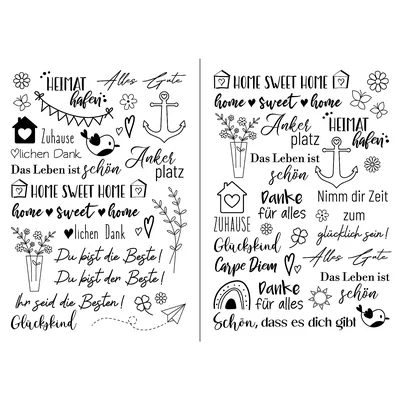 HEIMAT
hafen
Alles Gute
Zuhause
lichen Dank
Das Leben ist
schön
Anker
platz
HOME SWEET HOME
home sweet home
lichen Dank
Du bist die Beste!
Du bist der Beste!
Ihr seid die Besten!
Glückskind
HOME SWEET HOME
home sweet home
Anker
platz
HEIMAT
hafen
Das Leben ist
schön
ZUHAUSE
Danke
für alles
Nimm dir Zeit
zum
glücklich sein!
Glückskind
Carpe Diem
Alles Gute
Das Leben ist
schön
Danke
für alles
Schön, dass es dich gibt